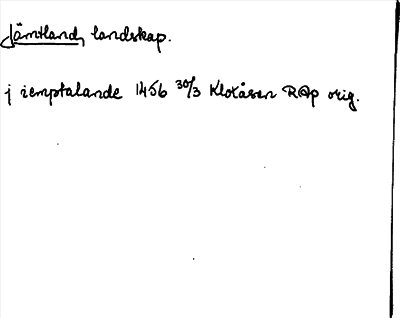 Jämtland, landskap.
j iemptalande 1456 30/3 Klotåsen RAp orig.